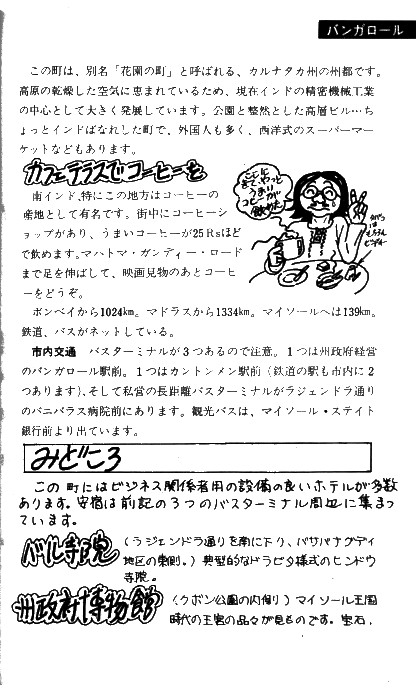 バンガロール
この町は、別名「花園の町」と呼ばれる、カルナタカ州の州都です。
高原の乾燥した空気に恵まれているため、現在インドの精密機械工業
の中心として大きく発展しています。公園と整然とした高層ビル…ち
ょっとインドばなれした町で、外国人も多く、西洋式のスーパーマー
ケットなどもあります。
カフェテラスでコーヒーを
南インド、特にこの地方はコーヒーの
産地として有名です。街中にコーヒーシ
ョップがあり、うまいコーヒーが25Rsほど
で飲めます。マハトマ・ガンディー・ロード
まで足を伸ばして、映画見物のあとコーヒ
ーをどうぞ。
ここに
きて、やっと
うまい
コーヒーが
飲めた
ボンベイから1024km。マドラスから1334km。マイソールへは139km。
鉄道、バスがネットしている。
市内交通 バスターミナルが3つあるので注意。1つは州政府経営
のバンガロール駅前。1つはカントンメン駅前（鉄道の駅も市内に2
つあります）、そして私営の長距離バスターミナルがラジェンドラ通り
のバニバラス病院前にあります。観光バスは、マイソール・ステイト
銀行前より出ています。
みどころ
この町にはビジネス関係者用の設備の良いホテルが多数
あります。安宿は前記の3つのバスターミナル周辺に集まっ
ています。
ベル寺院
（ラジェンドラ通りを南に下り、バサバナグディ
地区の東側。）典型的なドラビダ様式のヒンドウ
寺院。
州政府博物館
（クボン公園の内側）マイソール王国
時代の王宮の品々が見ものです。宝石、